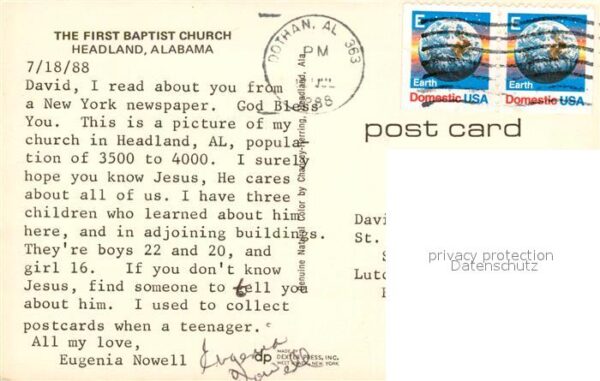 THE FIRST BAPTIST CHURCH
HEADLAND, ALABAMA
7/18/88
David, I read about you from
a New York newspaper. God Bless
You. This is a picture of my
church in Headland, AL, popula-
tion of 3500 to 4000. I surely
hope you know Jesus, He cares
about all of us. I have three
children who learned about him
here, and in adjoining buildings.
They're boys 22 and 20, and
girl 16. If you don't know
Jesus, find someone to tell you
about him. I used to collect
postcards when a teenager.
All my love,
Eugenia Nowell
Eugenia
Nowell
Genuine Natural Color by Headland, Ala.
dp
MADE BY
DEXTER PRESS, INC.
WEST NYACK, NEW YORK
DOTHAN, AL 363
PM
JUL
1988
E
Earth
Domestic USA
E
Earth
Domestic USA
post card
Davi
St.
S
Lutc
privacy protection
Datenschutz